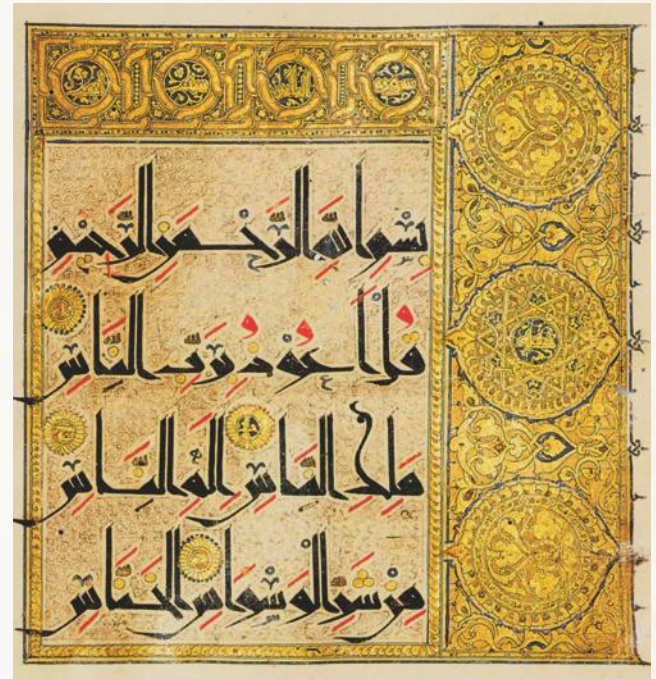 بِسْمِ اللَّهِ الرَّحْمَٰنِ الرَّحِيمِ
قُلْ أَعُوذُ بِرَبِّ النَّاسِ
مَلِكِ النَّاسِ إِلَٰهِ النَّاسِ
مِنْ شَرِّ الْوَسْوَاسِ الْخَنَّاسِ